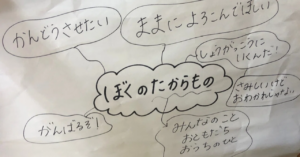 かんどうさせたい
ままによろこんでほしい
しょうがっこうに
いくんだ!
ぼくのたからもの
さみしいけど
おわかれしゃない
がんばるぞ!
みんなのこと
おともだち
おうちのひと